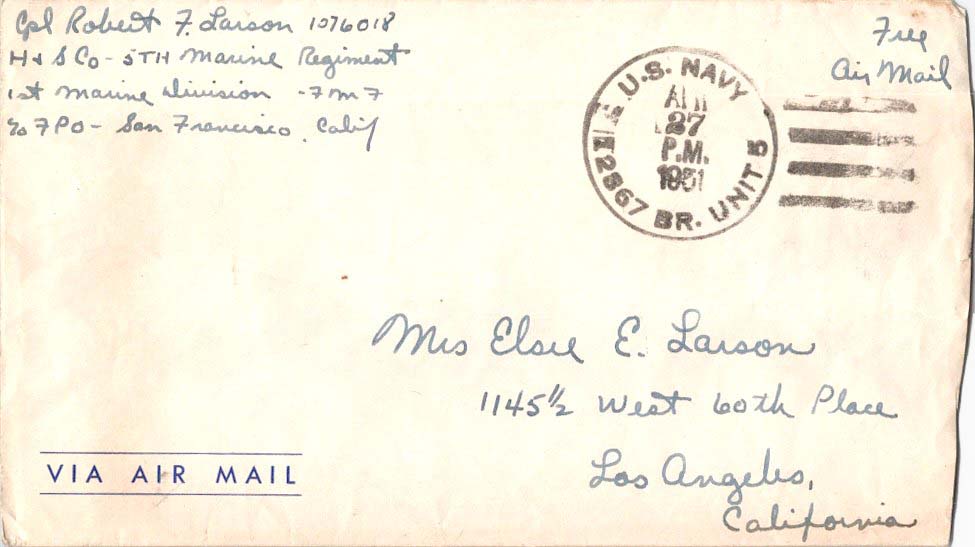 Cpl Robert F. Larson 1076018
H & S Co - 5TH Marine Regiment
1st Marine Division - F M F
c/o FPO - San Francisco, Calif
Free
Air Mail
U.S. NAVY
27
P.M.
1951
12867 BR. UNIT 5
Mrs Elsie E. Larson
1145 1/2 West 60th Place
Los Angeles,
California
VIA AIR MAIL